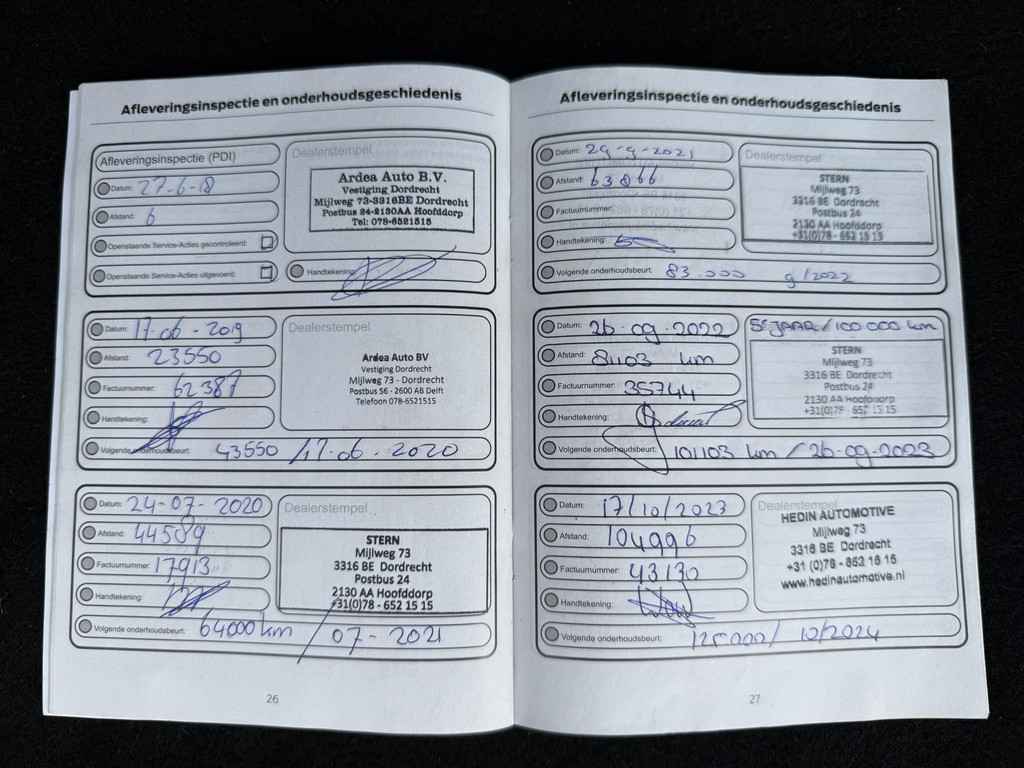 Afleveringsinspectie en onderhoudsgeschiedenis
Afleveringsinspectie (PDI)
Datum: 27-6-18
Afstand: 6
Openstaande Service-Acties gecontroleerd:
Openstaande Service-Acties uitgevoerd:
Dealerstempel
Ardea Auto B.V.
Vestiging Dordrecht
Mijlweg 73-3316BE Dordrecht
Postbus 24-2130AA Hoofddorp
Tel: 078-6521515
Handtekening:
Datum: 17-06-2019
Afstand: 23550
Factuurnummer: 62387
Handtekening:
Dealerstempel
Ardea Auto BV
Vestiging Dordrecht
Mijlweg 73 - Dordrecht
Postbus 56 - 2600 AB Delft
Telefoon 078-6521515
Volgende onderhoudsbeurt: 43550 / 17-06-2020
Datum: 24-07-2020
Afstand: 44589
Factuurnummer: 17913
Handtekening:
Dealerstempel
STERN
Mijlweg 73
3316 BE Dordrecht
Postbus 24
2130 AA Hoofddorp
+31(0)78 - 652 15 15
Volgende onderhoudsbeurt: 64000 km / 07-2021
26
Afleveringsinspectie en onderhoudsgeschiedenis
Datum: 29-9-2021
Afstand: 63866
Factuurnummer:
Handtekening:
Dealerstempel
STERN
Mijlweg 73
3316 BE Dordrecht
Postbus 24
2130 AA Hoofddorp
+31(0)78 - 652 15 15
Volgende onderhoudsbeurt: 83.000 9/2022
Datum: 26-09-2022
Afstand: 81103 km
Factuurnummer: 35744
Handtekening:
5e JAAR / 100.000 km
STERN
Mijlweg 73
3316 BE Dordrecht
Postbus 24
2130 AA Hoofddorp
+31(0)78 - 652 15 15
Volgende onderhoudsbeurt: 101103 km / 26-09-2023
Datum: 17/10/2023
Afstand: 104996
Factuurnummer: 43130
Handtekening:
Dealerstempel
HEDIN AUTOMOTIVE
Mijlweg 73
3316 BE Dordrecht
+31 (0)78 - 652 15 15
www.hedinautomotive.nl
Volgende onderhoudsbeurt: 125.000/ 10/2024
27